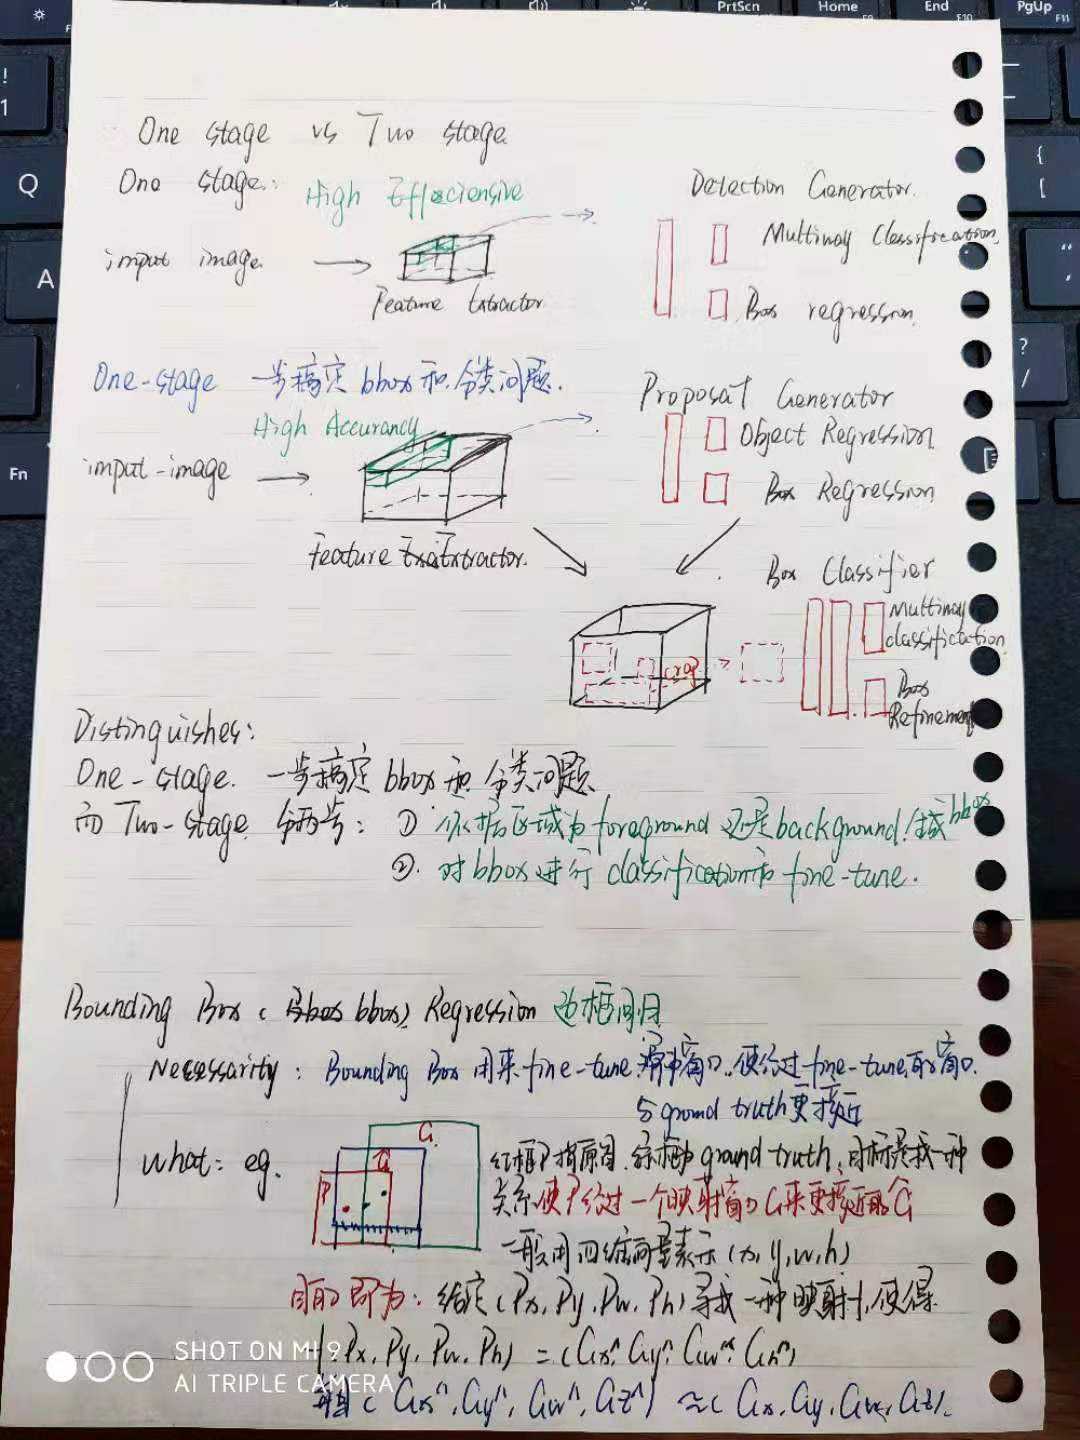 PrtScn Home End PgUp
F10 F11
Q
A
Fn
One stage vs Two stage
One stage: High Effeciensive Detection Generator.
input image. Multiway Classification
Feature Extractor Box regression
One-stage 一步搞定 bbox 和 分类问题.
High Accurancy Proposal Generator
input-image Object Regression
Box Regression
Feature Extractor.
Box Classifier
Multiway classification
crop
Box Refinement
Distinguishes:
One-stage. 一步搞定 bbox 和 分类问题
而 Two-stage 分两步: ① 依据区域为 foreground 还是 background 生成 bbox
②. 对 bbox 进行 classification 和 fine-tune.
Bounding Box ( bbox) Regression 边框回归
Necessarity: Bounding Box 用来 fine-tune 滑动窗口, 使经过 fine-tune 的窗口
与 ground truth 更接近
what: eg.
G
Ĝ
P
红框P指原图, 绿框 ground truth, 目标是找一种
关系使P经过一个映射窗口G来更接近的Ĝ
一般用四维向量表示 (x, y, w, h)
目的即为: 给定 (Px, Py, Pw, Ph) 寻找一种映射f, 使得
f(Px, Py, Pw, Ph) = (Gx^, Gy^, Gw^, Gh^)
且 (Gx^, Gy^, Gw^, Gz^) ≈ (Gx, Gy, Gw, Gz).
SHOT ON MI 9
AI TRIPLE CAMERA